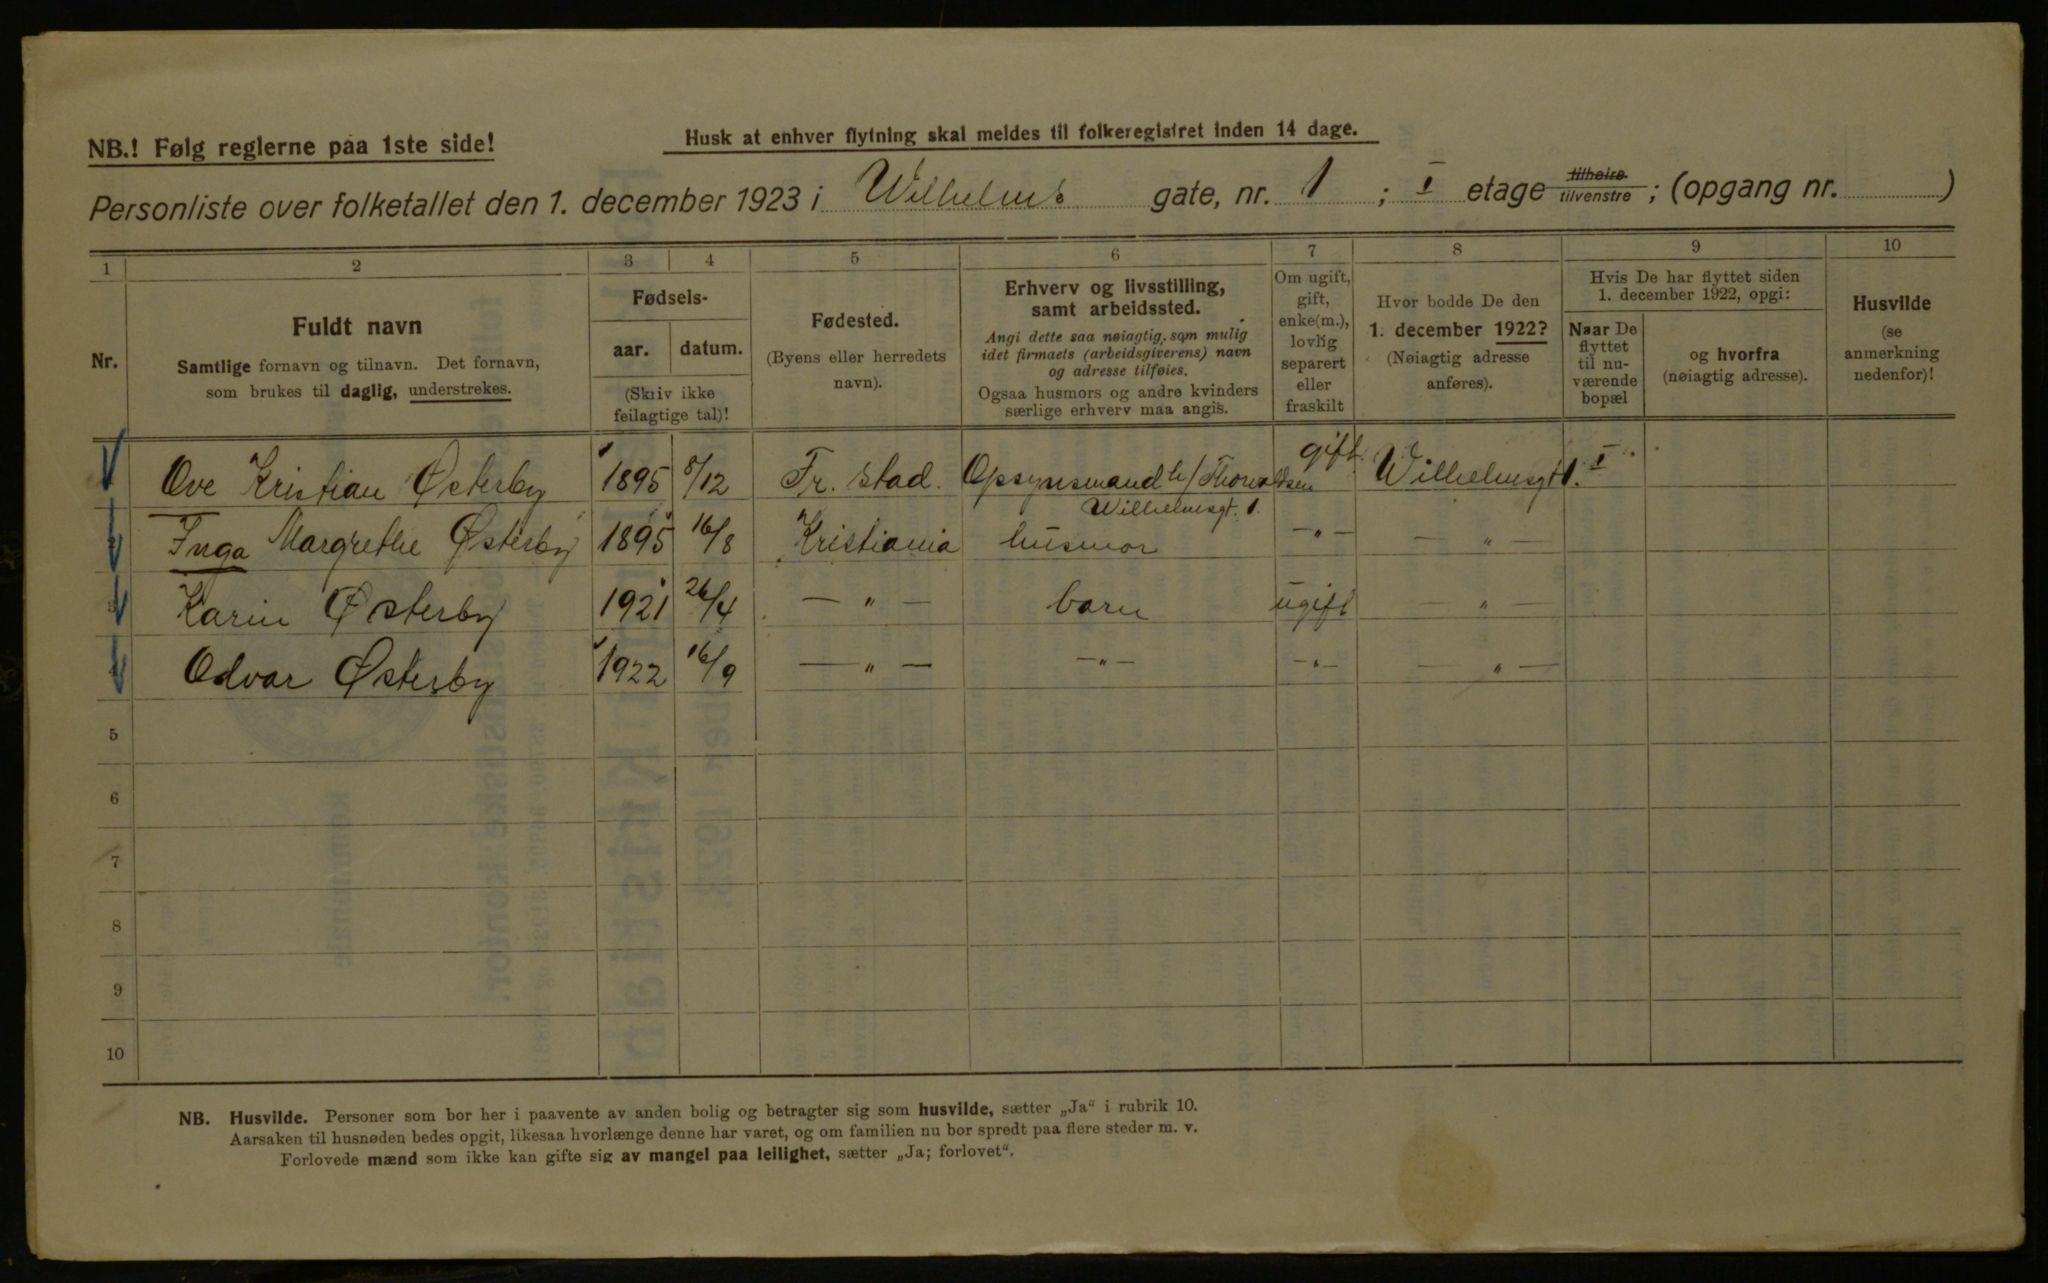 NB.! Følg reglerne paa 1ste side!
Husk at enhver flytning skal meldes til folkeregistret inden 14 dage.
Personliste over folketallet den 1. december 1923 i Wilhelms gate, nr. 1 ; I etage tilhøire tilvenstre ; (opgang nr. )
1 2 3 4 5 6 7 8 9 10
Nr.
Fuldt navn
Samtlige fornavn og tilnavn. Det fornavn,
som brukes til daglig, understrekes.
Fødsels-
aar. datum.
(Skriv ikke
feilagtige tal)!
Fødested.
(Byens eller herredets
navn).
Erhverv og livsstilling,
samt arbeidssted.
Angi dette saa nøiagtig som mulig
idet firmaets (arbeidsgiverens) navn
og adresse tilføies.
Ogsaa husmors og andre kvinders
særlige erhverv maa angis.
Om ugift,
gift,
enke(m.),
lovlig
separert
eller
fraskilt
Hvor bodde De den
1. december 1922?
(Nøiagtig adresse
anføres).
Hvis De har flyttet siden
1. december 1922, opgi:
Naar De
flyttet
til nu-
værende
bopæl
og hvorfra
(nøiagtig adresse).
Husvilde
(se
anmerkning
nedenfor)!
Ove Kristian Østerby 1895 8/12 Fr. stad. Opsynsmand h/ Thorvaldsen gift Wilhelmsgt 1. I
Wilhelmsgt. 1.
Inga Margrethe Østerby 1895 16/8 Kristiania husmor —"— — " —
3 Karin Østerby 1921 26/4 — " — barn ugift — " —
Odvar Østerby 1922 16/9 — " — —"— —"— — " —
5
6
7
8
9
10
NB. Husvilde. Personer som bor her i paavente av anden bolig og betragter sig som husvilde, sætter „Ja“ i rubrik 10.
Aarsaken til husnøden bedes opgit, likesaa hvorlænge denne har varet, og om familien nu bor spredt paa flere steder m. v.
Forlovede mænd som ikke kan gifte sig av mangel paa leilighet, sætter „Ja; forlovet“.